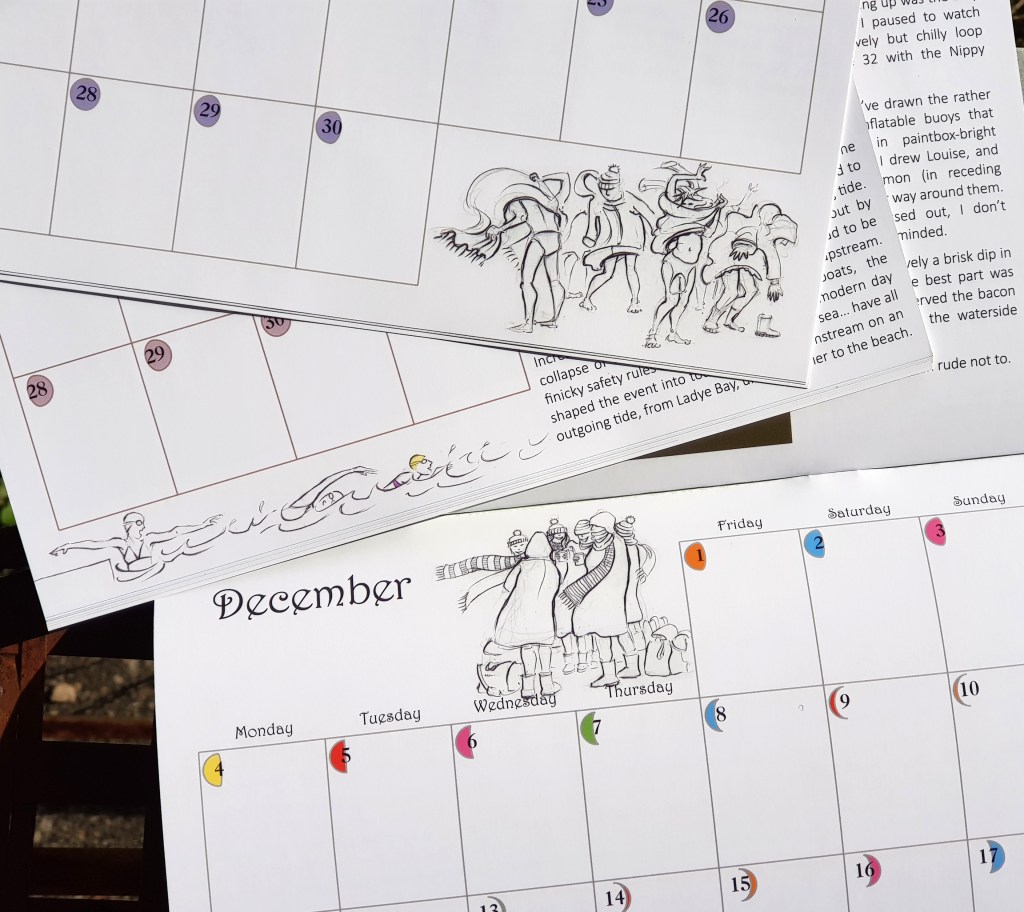 25
26
28
29
30
ng up was the
I paused to watch
vely but chilly loop
32 with the Nippy
've drawn the rather
nflatable buoys that
in paintbox-bright
I drew Louise, and
mon (in receding
way around them.
sed out, I don't
minded.
vely a brisk dip in
e best part was
erved the bacon
the waterside
rude not to.
ne
d to
tide.
out by
ad to be
upstream.
boats, the
modern day
sea... have all
nstream on an
her to the beach.
28
29
30
collapse o
finicky safety rules
shaped the event into
outgoing tide, from Ladye Bay,
December
Monday
Tuesday
Wednesday
Thursday
Friday
Saturday
Sunday
1
2
3
4
5
6
7
8
9
10
13
14
15
16
17